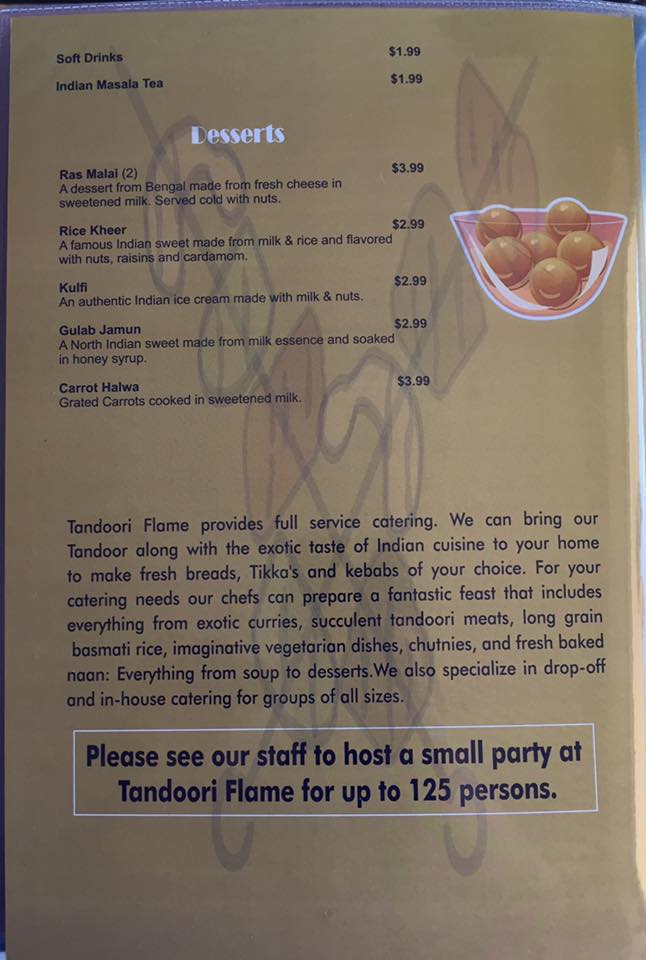 Soft Drinks $1.99
Indian Masala Tea $1.99
Desserts
Ras Malai (2) $3.99
A dessert from Bengal made from fresh cheese in
sweetened milk. Served cold with nuts.
Rice Kheer $2.99
A famous Indian sweet made from milk & rice and flavored
with nuts, raisins and cardamom.
Kulfi $2.99
An authentic Indian ice cream made with milk & nuts.
Gulab Jamun $2.99
A North Indian sweet made from milk essence and soaked
in honey syrup.
Carrot Halwa $3.99
Grated Carrots cooked in sweetened milk.
Tandoori Flame provides full service catering. We can bring our
Tandoor along with the exotic taste of Indian cuisine to your home
to make fresh breads, Tikka's and kebabs of your choice. For your
catering needs our chefs can prepare a fantastic feast that includes
everything from exotic curries, succulent tandoori meats, long grain
basmati rice, imaginative vegetarian dishes, chutnies, and fresh baked
naan: Everything from soup to desserts.We also specialize in drop-off
and in-house catering for groups of all sizes.
Please see our staff to host a small party at
Tandoori Flame for up to 125 persons.